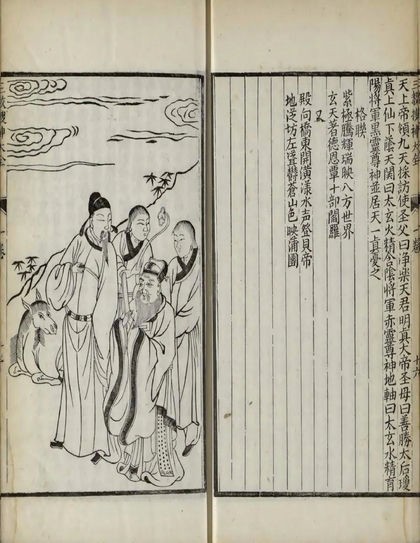 天上帝領九天採訪使圣父曰淨樂天君明真大帝圣母曰善勝太后瓊
真上仙下䕃天関曰太玄火精含陰將軍赤靈尊神地軸曰太玄水精育
陽將軍黑靈尊神並居天一真慶之
格聯
紫極騰輝瑞映八方世界
玄天著德恩覃十部閻羅
又
殿向橋東開潢漾水声登貝帝
地泛坊左聳欝蒼山色映蒲圑